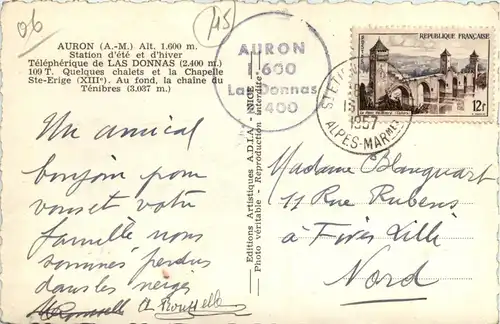 06
45
AURON (A.-M.) Alt. 1.600 m.
Station d'été et d'hiver
Téléphérique de LAS DONNAS (2.400 m.)
109 T. Quelques chalets et la Chapelle
Ste-Erige (XIIIe). Au fond, la chaîne du
Ténibres (3.037 m.)
AURON
1600
Las Donnas
2400
RÉPUBLIQUE FRANÇAISE
12f
1957
ALPES-MARMES
Editions Artistiques A.D.I.A. - NICE
Photo véritable - Reproduction interdite
Un amical
bonjour pour
vous et votre
famille nous
sommes perdus
dans les neiges
A Rousselle
Madame Blanquart
11 Rue Rubens
à Fives Lille
Nord